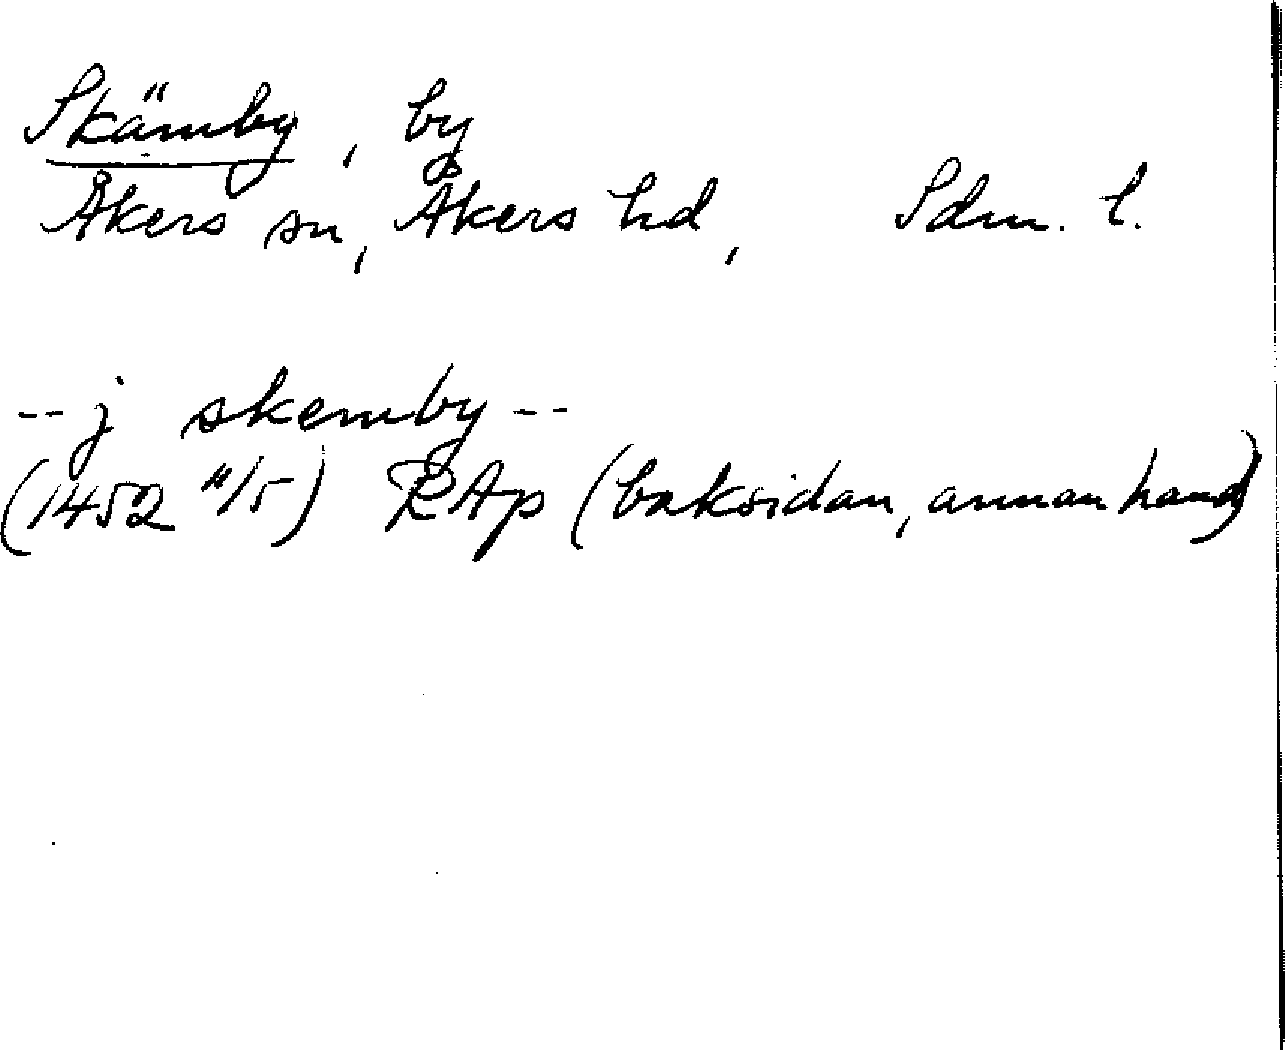 Skämby, by
Åkers sn, Åkers hd, Sdm. l.
-- j skemby --
(1452 11/5) RAp (baksidan, annan hand)